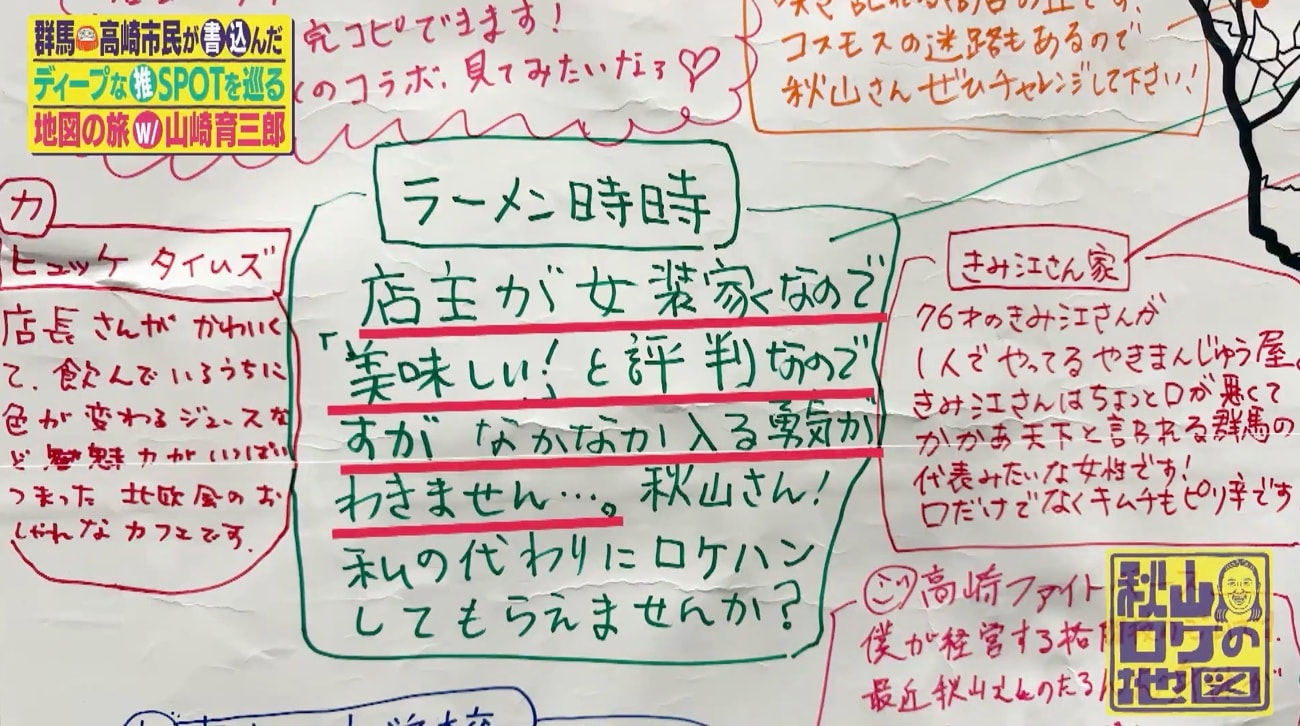 群馬 高崎市民が書き込んだ
ディープな推SPOTを巡る
地図の旅 w/ 山崎育三郎
完コピできます!
のコラボ、見てみたいなぁ♡
コスモスの迷路もあるので
秋山さんぜひチャレンジして下さい!
カ
ヒュッケ タイムズ
店長さんが かわいく
て、飲んでいるうちに
色が変わるジュースな
ど 魅力がいっぱい
つまった 北欧風のお
しゃれな カフェです。
ラーメン時時
店主が女装家なので
「美味しい!と評判なので
すが なかなか入る勇気が
わきません…。秋山さん!
私の代わりにロケハン
してもらえませんか?
きみ江さん家
76才のきみ江さんが
1人でやってるやきまんじゅう屋。
きみ江さんはちょっと口が悪くて
かかあ天下と言われる群馬の
代表みたいな女性です!
口だけでなくキムチもピリ辛です
高崎ファイト
僕が経営する格
最近秋山さんのたる
秋山ロケの地図